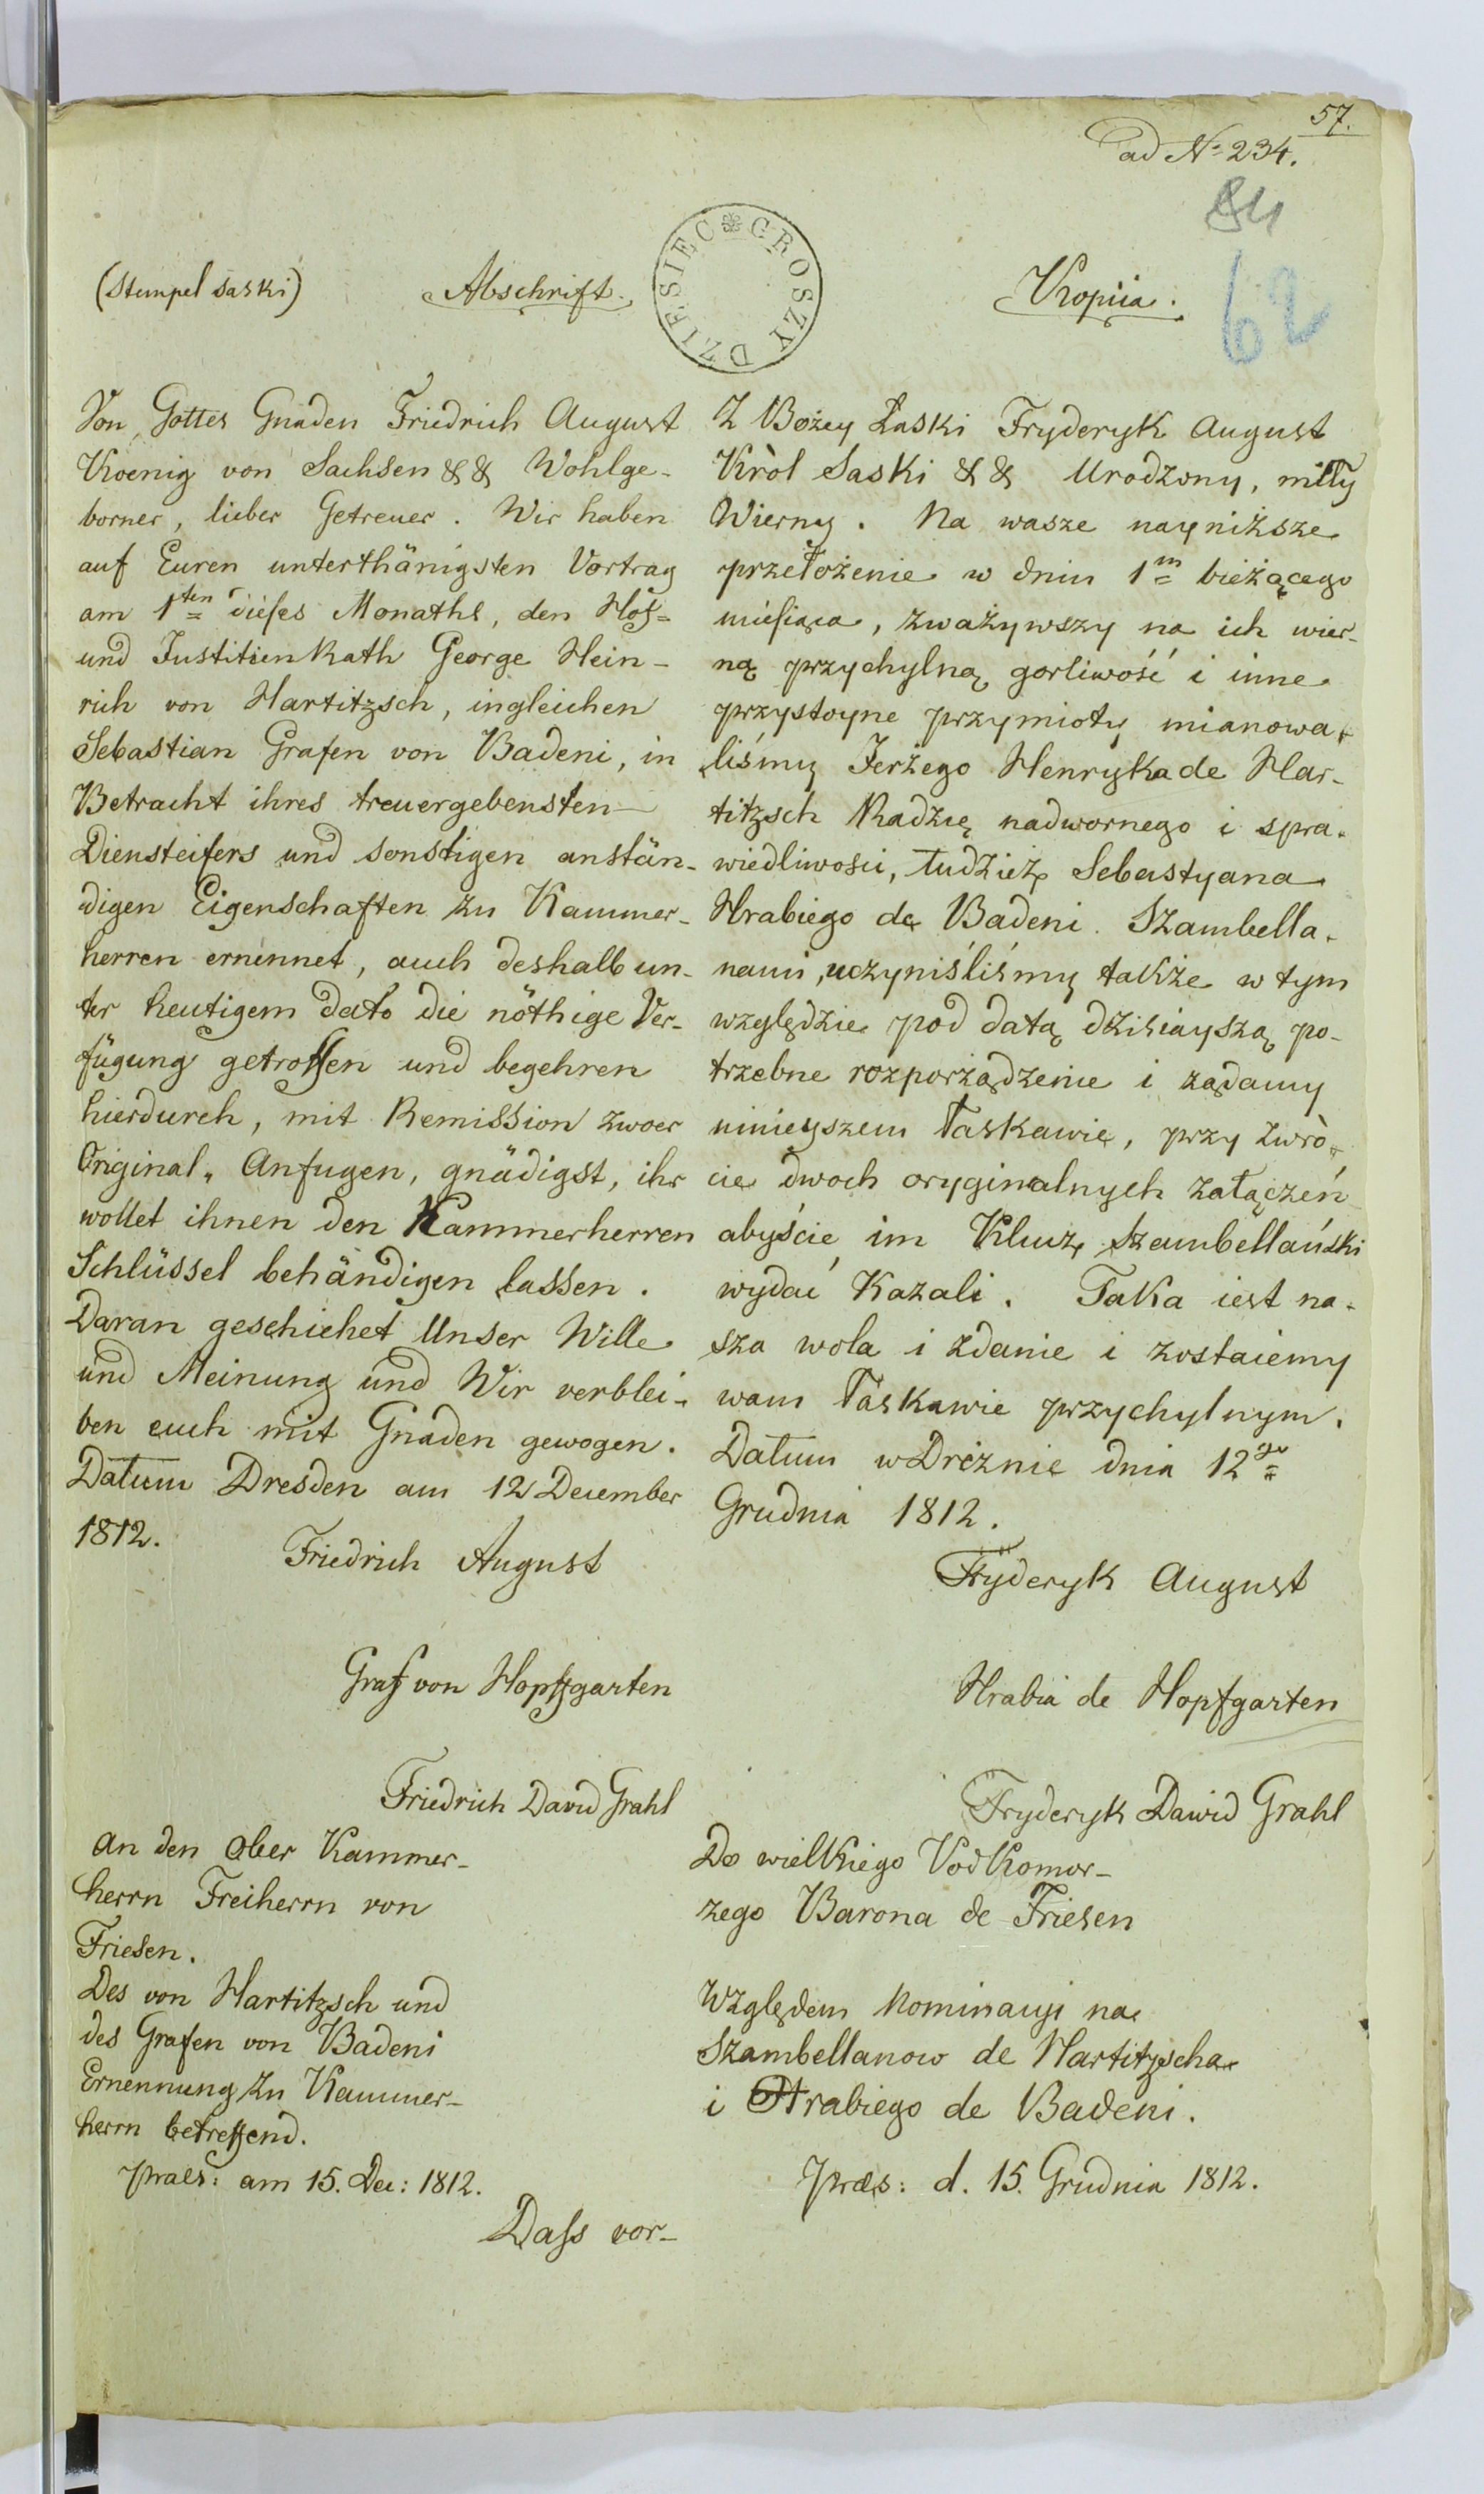 57.
ad № 234.
84
62
(Stempel Saski)
Abschrift.
DZIESIĘC GROSZY
Kopiia.
Von Gottes Gnaden Friedrich August
Koenig von Sachsen && Wohlge-
borner, lieber Getreuer. Wir haben
auf Euren unterthänigsten Vortrag
am 1ten dieses Monaths, den Hof-
und Justitien Rath George Hein-
rich von Hartitzsch, ingleichen
Sebastian Grafen von Badeni, in
Betracht ihres treuergebensten
Diensteifers und sonstigen anstän-
digen Eigenschaften zu Kammer-
herren ernennet, auch deshalb un-
ter heutigem dato die nöthige Ver-
fügung getroffen und begehren
hierdurch, mit Remission zwoer
Original-Anfugen, gnädigst, ihr
wollet ihnen den Kammerherren
Schlüssel behändigen lassen.
Daran geschiehet Unser Wille
und Meinung und Wir verblei-
ben euch mit Gnaden gewogen.
Datum Dresden am 12 December
1812.
Friedrich August
Graf von Hopffgarten
Friedrich David Grahl
An den Ober Kammer-
herrn Freiherrn von
Friesen.
Des von Hartitzsch und
des Grafen von Badeni
Ernennung zu Kammer-
herrn betreffend.
Praes: am 15. Dec: 1812.
Dass vor-
Z Bożey Łaski Fryderyk August
Król Saski && Urodzony, miły
Wierny. Na wasze nayniższe
przełożenie w dniu 1m bieżącego
miesiąca, zważywszy na ich wier-
ną przychylną gorliwość i inne
przystoyne przymioty mianowa-
liśmy Jerżego Henryka de Har-
titzsch Radzię nadwornego i spra-
wiedliwosci, tudzież Sebastyana
Hrabiego de Badeni. Szambella-
nami, uczyniśliśmy także w tym
względzie pod datą dzisiayszą po-
trzebne rozporządzenie i żądamy
ninieyszem łaskawie, przy zwró-
cie dwoch oryginalnych załączeń
abyście im Klucz Szambellański
wydać Kazali. Taka iest na-
sza wola i zdanie i zostaiemy
wam łaskawie przychylnym.
Datum w Dreżnie dnia 12go
Grudnia 1812.
Fryderyk August
Hrabia de Hopfgarten
Fryderyk Dawid Grahl
Do wielkiego Podkomor-
zego Barona de Friesen
Względem Nominacyi na
Szambellanow de Hartitzscha
i Hrabiego de Badeni.
Præs: d. 15. Grudnia 1812.